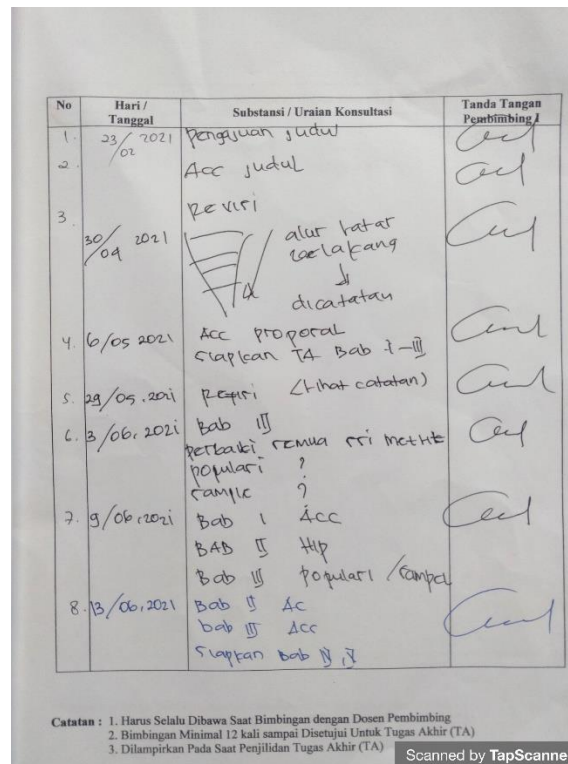 No Hari / Tanggal Substansi / Uraian Konsultasi Tanda Tangan Pembimbing I
1. 23/02 2021 Pengajuan judul
2. Acc judul
3. Revisi
30/04 2021 alur latar
belakang
dicatatan
4. 6/05 2021 Acc proposal
siapkan TA Bab I-III
5. 29/05.2021 Revisi (lihat catatan)
6. 3/06.2021 Bab III
perbaiki semua
populasi ?
sample ?
7. 9/06.2021 Bab I Acc
BAB II Hip
Bab III populasi / sampel
8. 13/06.2021 Bab II Ac
bab III Acc
siapkan Bab IV, V
Catatan : 1. Harus Selalu Dibawa Saat Bimbingan dengan Dosen Pembimbing
2. Bimbingan Minimal 12 kali sampai Disetujui Untuk Tugas Akhir (TA)
3. Dilampirkan Pada Saat Penjilidan Tugas Akhir (TA)
Scanned by TapScanner